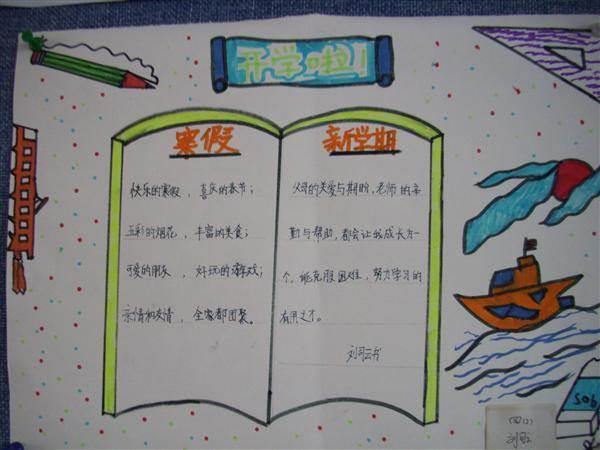 开学啦！
寒假
快乐的寒假，喜庆的春节；
五彩的烟花，丰富的美食；
可爱的朋友，好玩的游戏；
亲情和友情，全家都团聚。
新学期
父母的关爱与期盼，老师的辛
勤与帮助，都会让我成长为一
个能克服困难，努力学习的
有用之才。